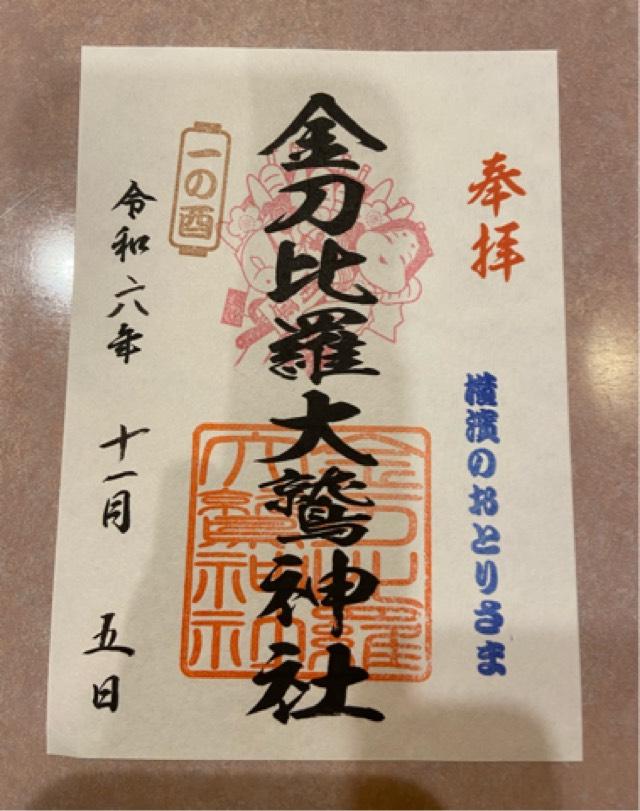 奉拝
横濱のおとりさま
金刀比羅大鷲神社
金刀比羅
大鷲神社
一の酉
令和六年 十一月 五日